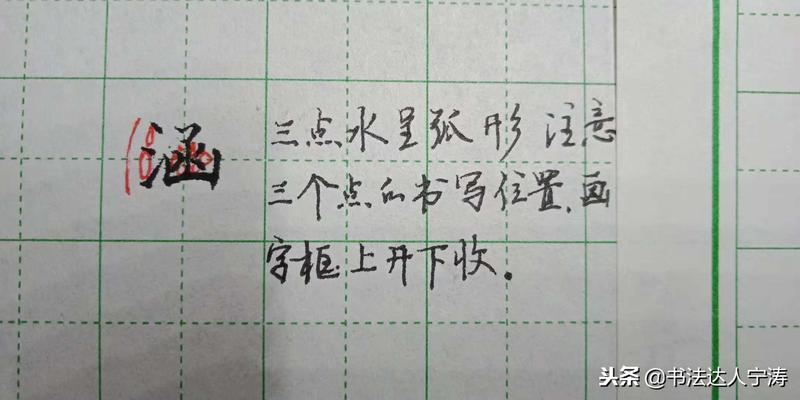 涵
三点水呈弧形 注意
三个点的书写位置,画
字框上开下收。
头条 @书法达人宁涛